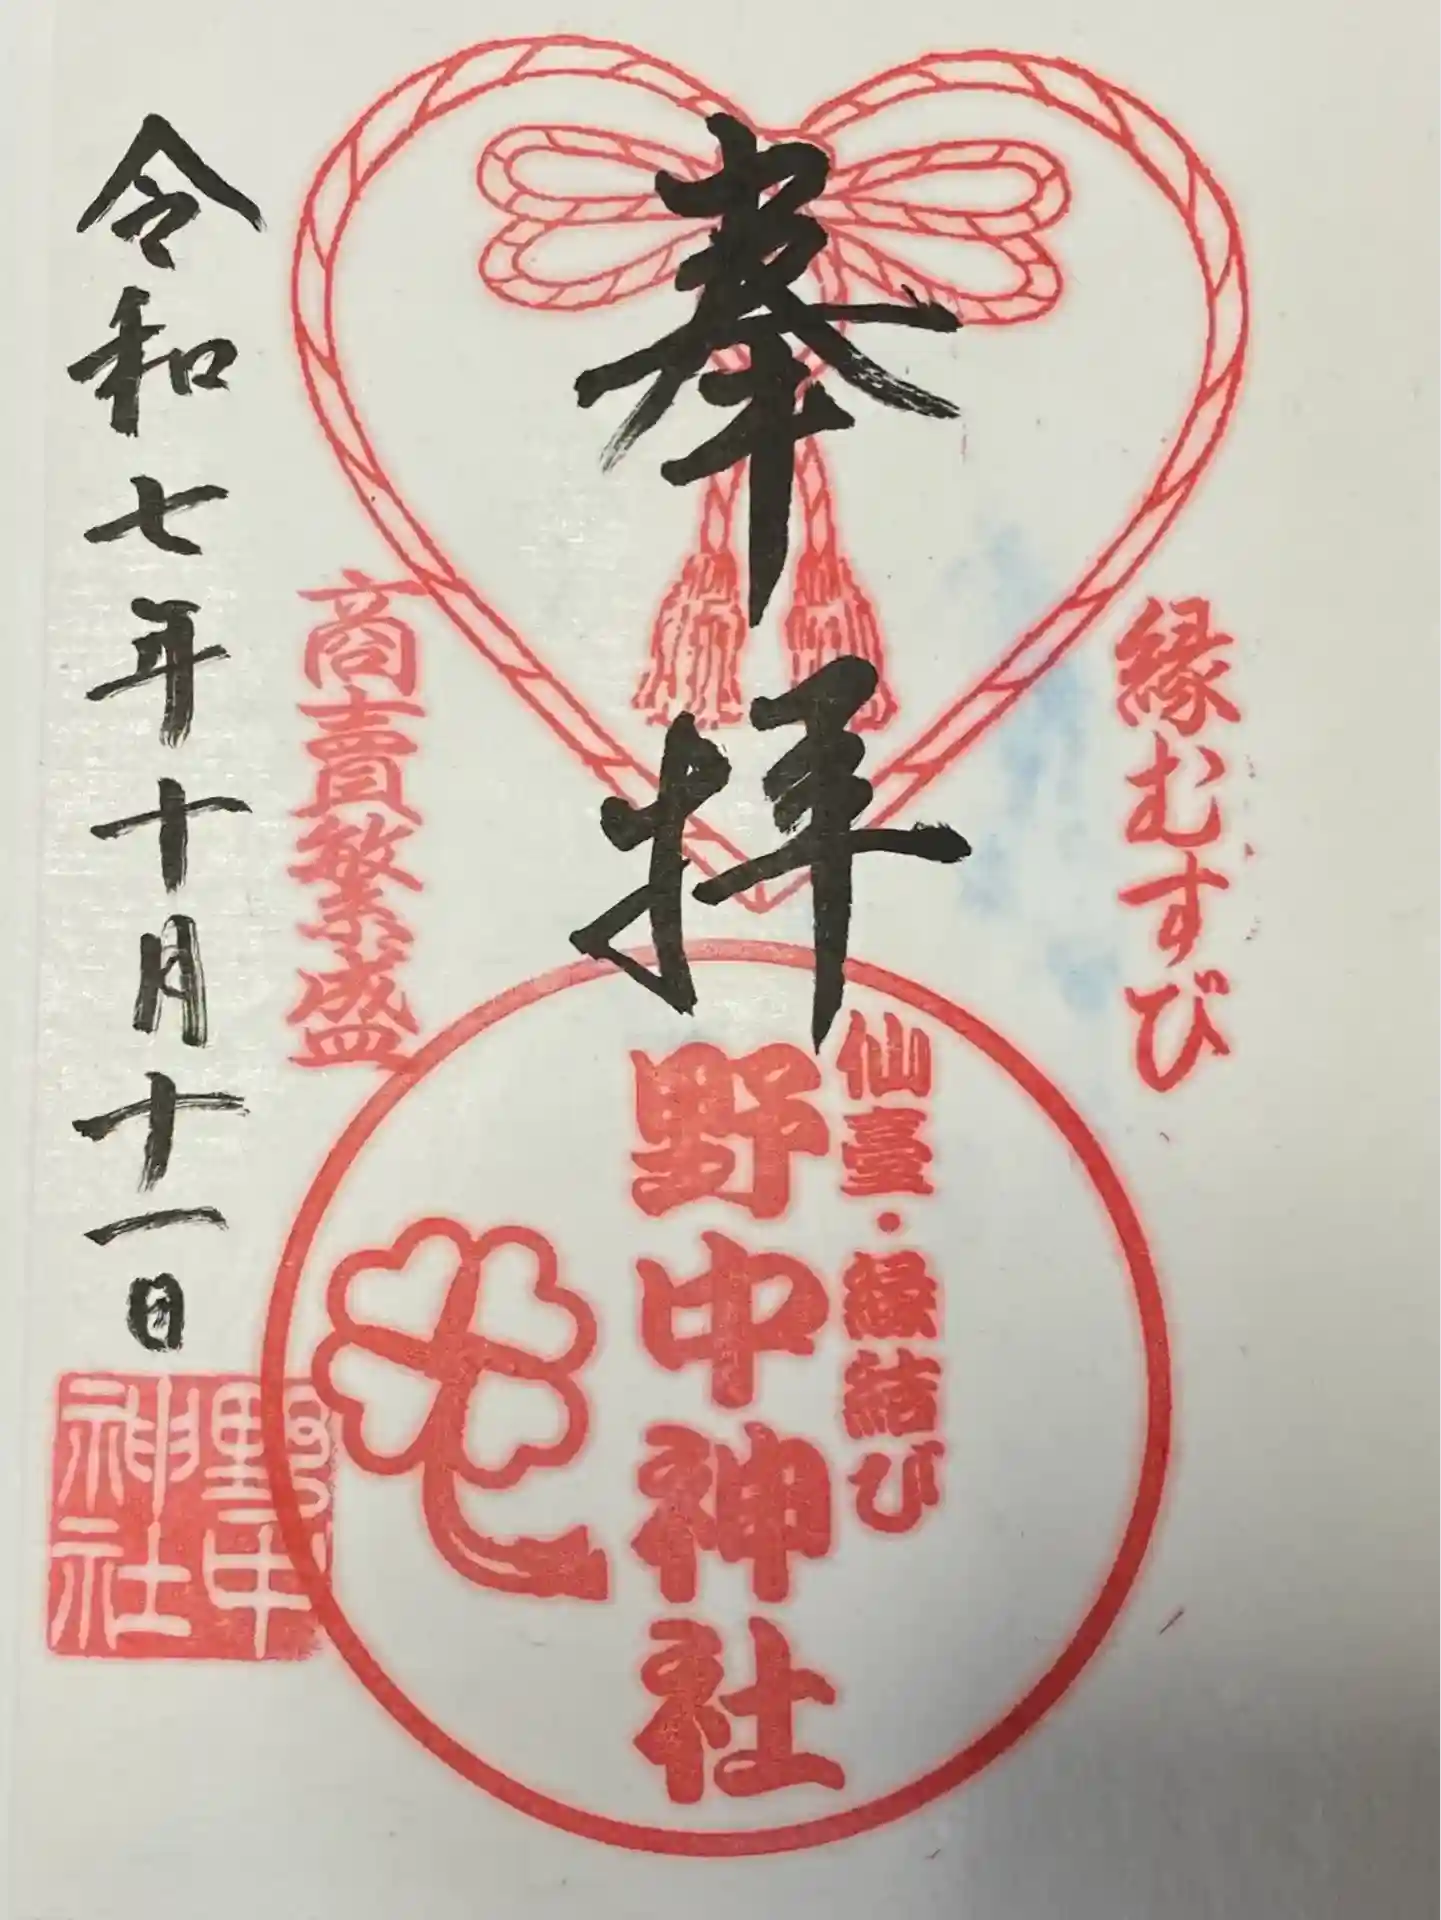 縁むすび
奉拝
仙臺・縁結び
野中神社
商売繁盛
令和七年十月十一日
野中
神社